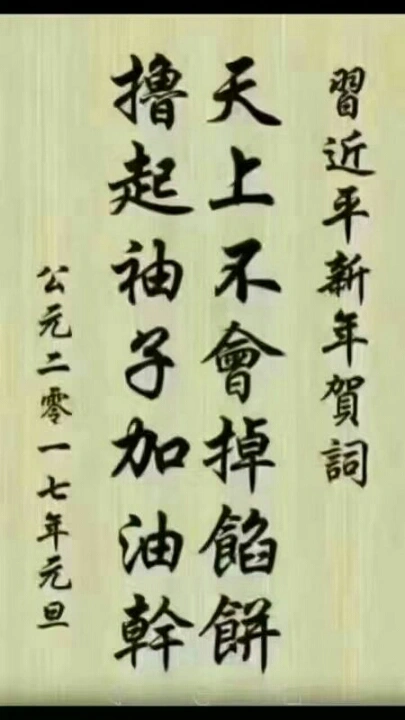 習近平新年賀詞
天上不會掉餡餅
擼起袖子加油幹
公元二零一七年元旦